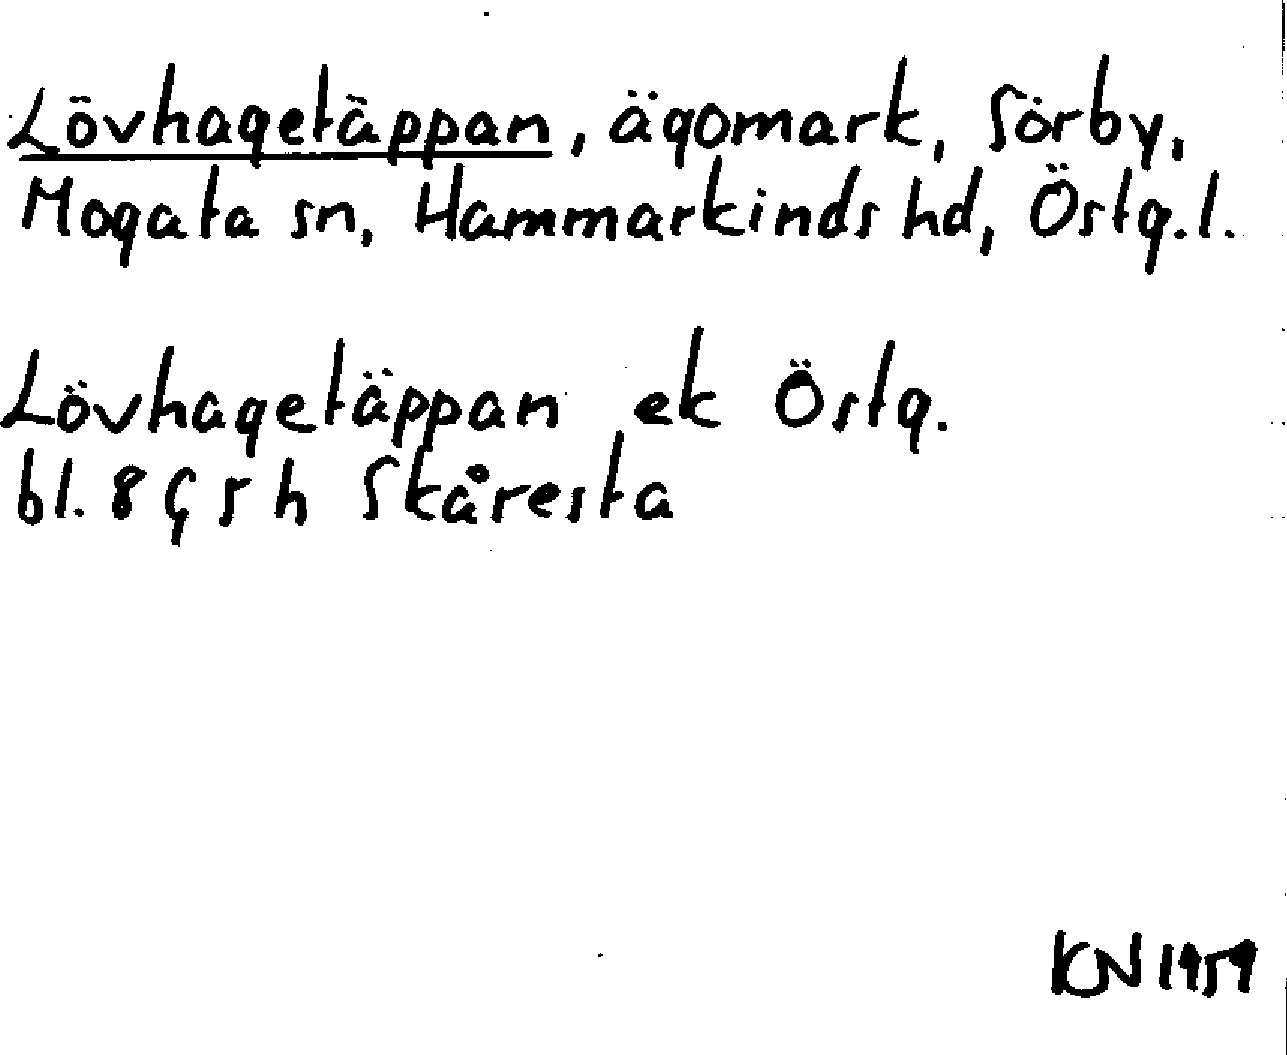 Lövhagetäppan, ägomark, Sörby,
Mogata sn, Hammarkinds hd, Östg.l.
Lövhagetäppan ek Östg.
bl. 8 G 5 h Skåresta
KN 1959